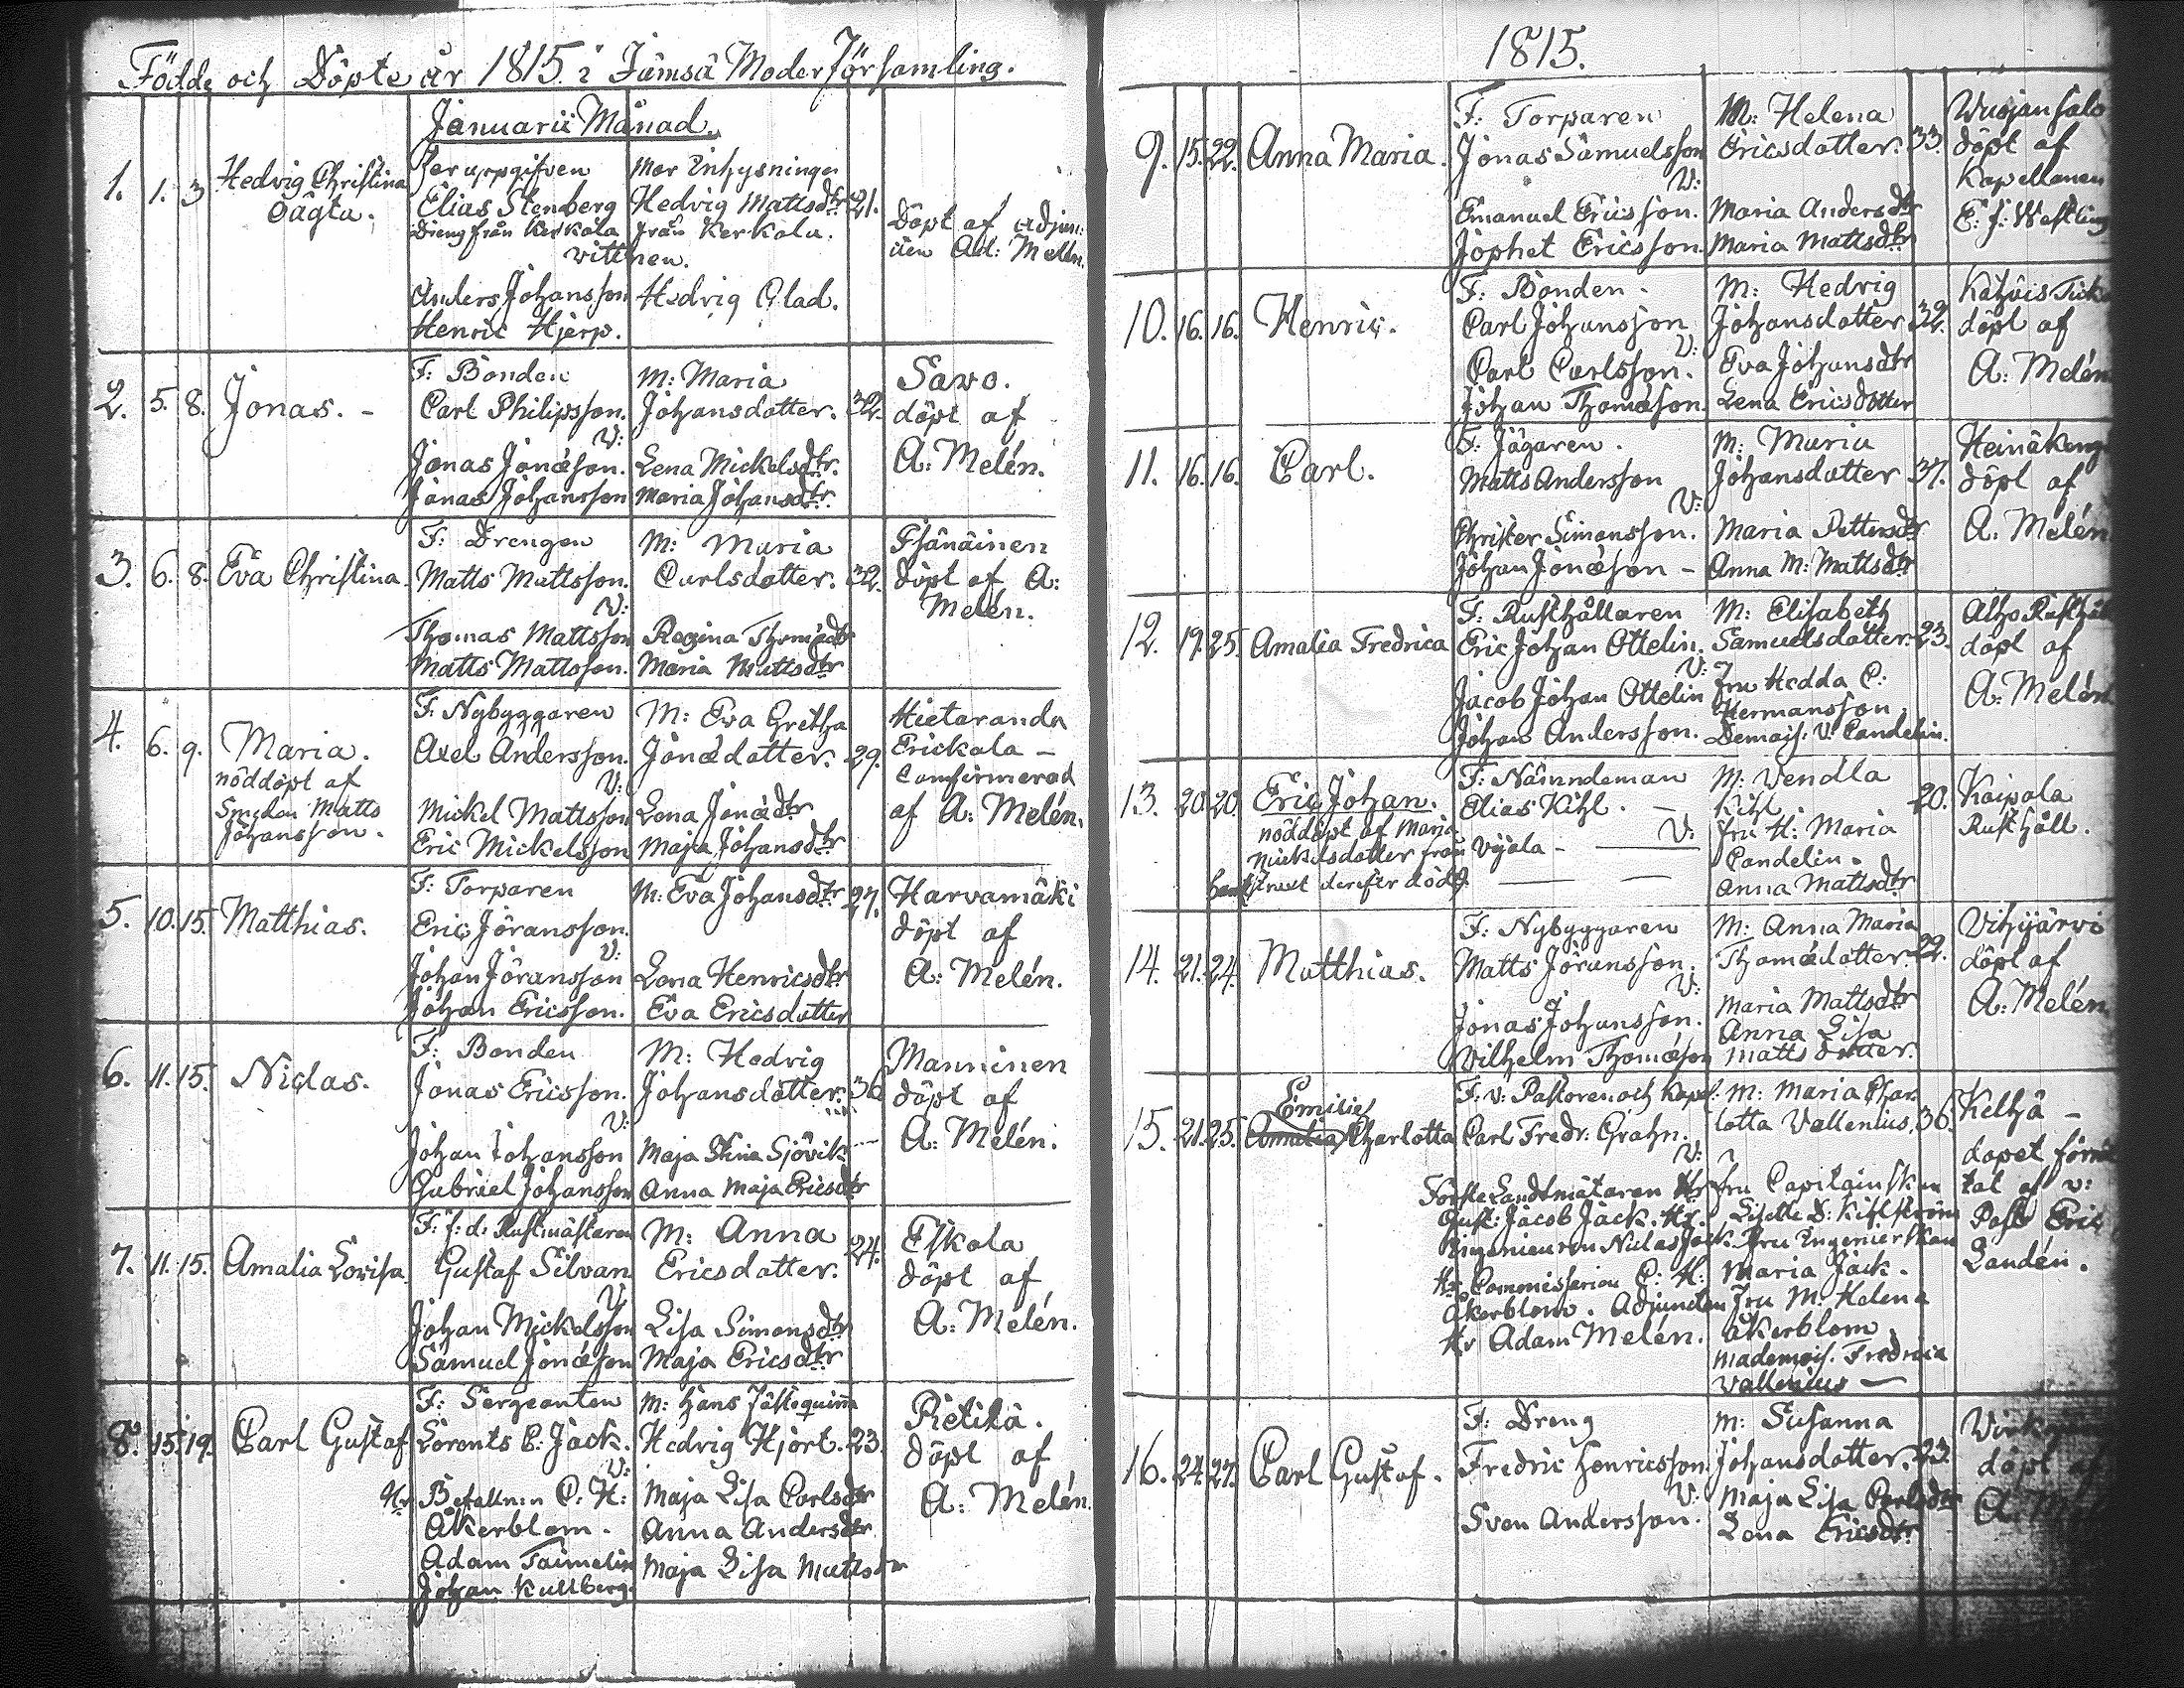 Födde och Döpte år 1815. i Jämsä Moder Församling.
Januarii Månad.
1. 1. 3 Hedvig Christina
oägta.
Far uppgifven
Elias Stenberg
Dreng från Kerkola
Mor Inhysningen
Hedvig Mattsdtr 21.
från Kerkola.
vittnen.
Anders Johansson Hedvig Glad.
Henric Hjerp.
Döpt af Adjun:
Ad: Melén.
2. 5. 8. Jonas. -
F: Bonden M: Maria
Carl Philipsson. Johansdotter. 32.
V:
Jonas Jonæson. Lena Mickelsdtr.
Jonas Johansson Maria Johansdtr.
Savo.
döpt af
A: Melén.
3. 6. 8. Eva Christina.
F: Drengen M: Maria
Matts Mattsson. Carlsdotter. 32.
V:
Thomas Mattsson Regina Thomædtr
Matts Mattsson. Maria Mattsdtr
Psänäinen
döpt af A:
Melén.
4. 6. 9. Maria.
nöddöpt af
Smeden Matts
Johansson.
F: Nybyggaren M: Eva Gretha
Axel Andersson. Jonædotter. 29.
V:
Mickel Mattsson Lena Jonædtr
Eric Mickelsson Maja Johansdtr
Hietaranda
Erickala -
Comfirmerad
af A: Melén.
5. 10. 15. Matthias.
F: Torparen M: Eva Johansdtr 27.
Eric Jöransson.
V:
Johan Jöransson Lena Henricsdtr
Johan Ericsson. Eva Ericsdotter
Harvamäki
döpt af
A: Melén.
6. 11. 15. Niclas.
F: Bonden M: Hedvig
Jonas Ericsson. Johansdotter. 36
V:
Johan Johansson Maja Stina Sjövik
Gabriel Johansson Anna Maja Ericsdtr
Manninen
döpt af
A: Melén.
7. 11. 15. Amalia Lovisa.
F: f: d: Rustmästaren M: Anna
Gustaf Silvan Ericsdotter. 24.
V:
Johan Mickelsson Lisa Simonsdtr
Samuel Jonæson Maja Ericsdtr
Eskola
döpt af
A: Melén.
8. 15. 19. Carl Gustaf
F: Sergeanten M: hans
Lorents C: Jack. Hedvig Hjort. 23.
V:
Hr Befalln:n C: H: Maja Lisa Carlsdtr
Åkerblom. Anna Andersdtr
Adam Taimelin Maja Lisa Mattsdtr
Johan Kullberg.
Pietilä.
döpt af
A: Melén.
1815.
9. 15. 22. Anna Maria.
F: Torparen M: Helena
Jonas Samuelsson Ericsdotter. 33.
V:
Emanuel Ericsson. Maria Andersdtr
Japhet Ericsson. Maria Mattsdtr
Wuojansalo
döpt af
Kapellanen
E: J: Westling
10. 16. 16. Henric.
F: Bonden. M: Hedvig
Carl Johansson Johansdotter 32.
V:
Carl Carlsson. Eva Johansdtr
Johan Thomæson. Lena Ericsdotter
döpt af
A: Melén
11. 16. 16. Carl.
F: Jägaren. M: Maria
Matts Andersson Johansdotter 37.
V:
Christer Simonsson. Maria Pettersdtr
Johan Jonæson - Anna M: Mattsdtr
Heinäkang
döpt af
A: Melén
12. 19. 25. Amalia Fredrica
F: Rusthållaren M: Elisabeth
Eric Johan Ottelin. Samuelsdotter. 23.
V:
Jacob Johan Ottelin Fru Hedda C:
Hermansson
Johan Andersson. Demois. V: Candelin.
Alho Rusthåll
döpt af
A: Melén
13. 20. 20. Eric Johan.
nöddöpt af Maria
Mickelsdotter från
straxt derefter död.
F: Nämndeman M: Vendla
Elias Kihl. - Kihl 20.
V: Fru H: Maria
Candelin.
Anna Mattsdtr
Kaipola
Rusthåll.
14. 21. 24. Matthias.
F: Nybyggaren M: Anna Maria
Matts Jöransson. Thomædotter. 22.
V:
Jonas Johansson. Maria Mattsdtr
Vilhelm Thomæson Anna Lisa
Matts dotter.
Vihijärvi
döpt af
A: Melén
15. 21. 25. Emilie
Amalia Charlotta
F: v: Pastoren och Kapel: M: Maria Char
Carl Fredr: Grahn. lotta Vallenius. 36.
V:
Förste Landtmätaren Hr Fru Capitainskan
Gust: Jacob Jack. Hr. Lisette D: Kihlström
Ringenieuren Niclas Jack. Fru Ingenierskan
Hr Commissarien C: H: Maria Jack.
Åkerblom. Adjuncten Fru M: Helena
Hr Adam Melén. Åkerblom
Mademois. Fredrica
Vallenius —
Kelhä -
dopet förrät
tat af v:
Past Eric
Landén.
16. 24. 27. Carl Gustaf.
F: Dreng M: Susanna
Fredric Henricsson Johansdotter. 23.
V:
Sven Andersson. Maja Lisa Carlsdtr
Lena Ericsdtr
döpt af